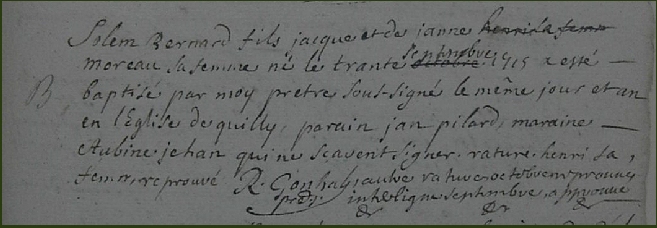 Solem Bernard fils jacque et de janne henri sa femm
moreau sa femme né le trante octobre septembre 1715 a esté
B baptisé par moy pretre soussigné le même jour et an
en l'Eglise de quilly, parain jan pilard, maraine
Aubine jehan qui ne scavent signer. rature. henri sa
femm, reprouvé R. Gonhay autre rature octobre reprouvé
pr interligne septembre approuvé